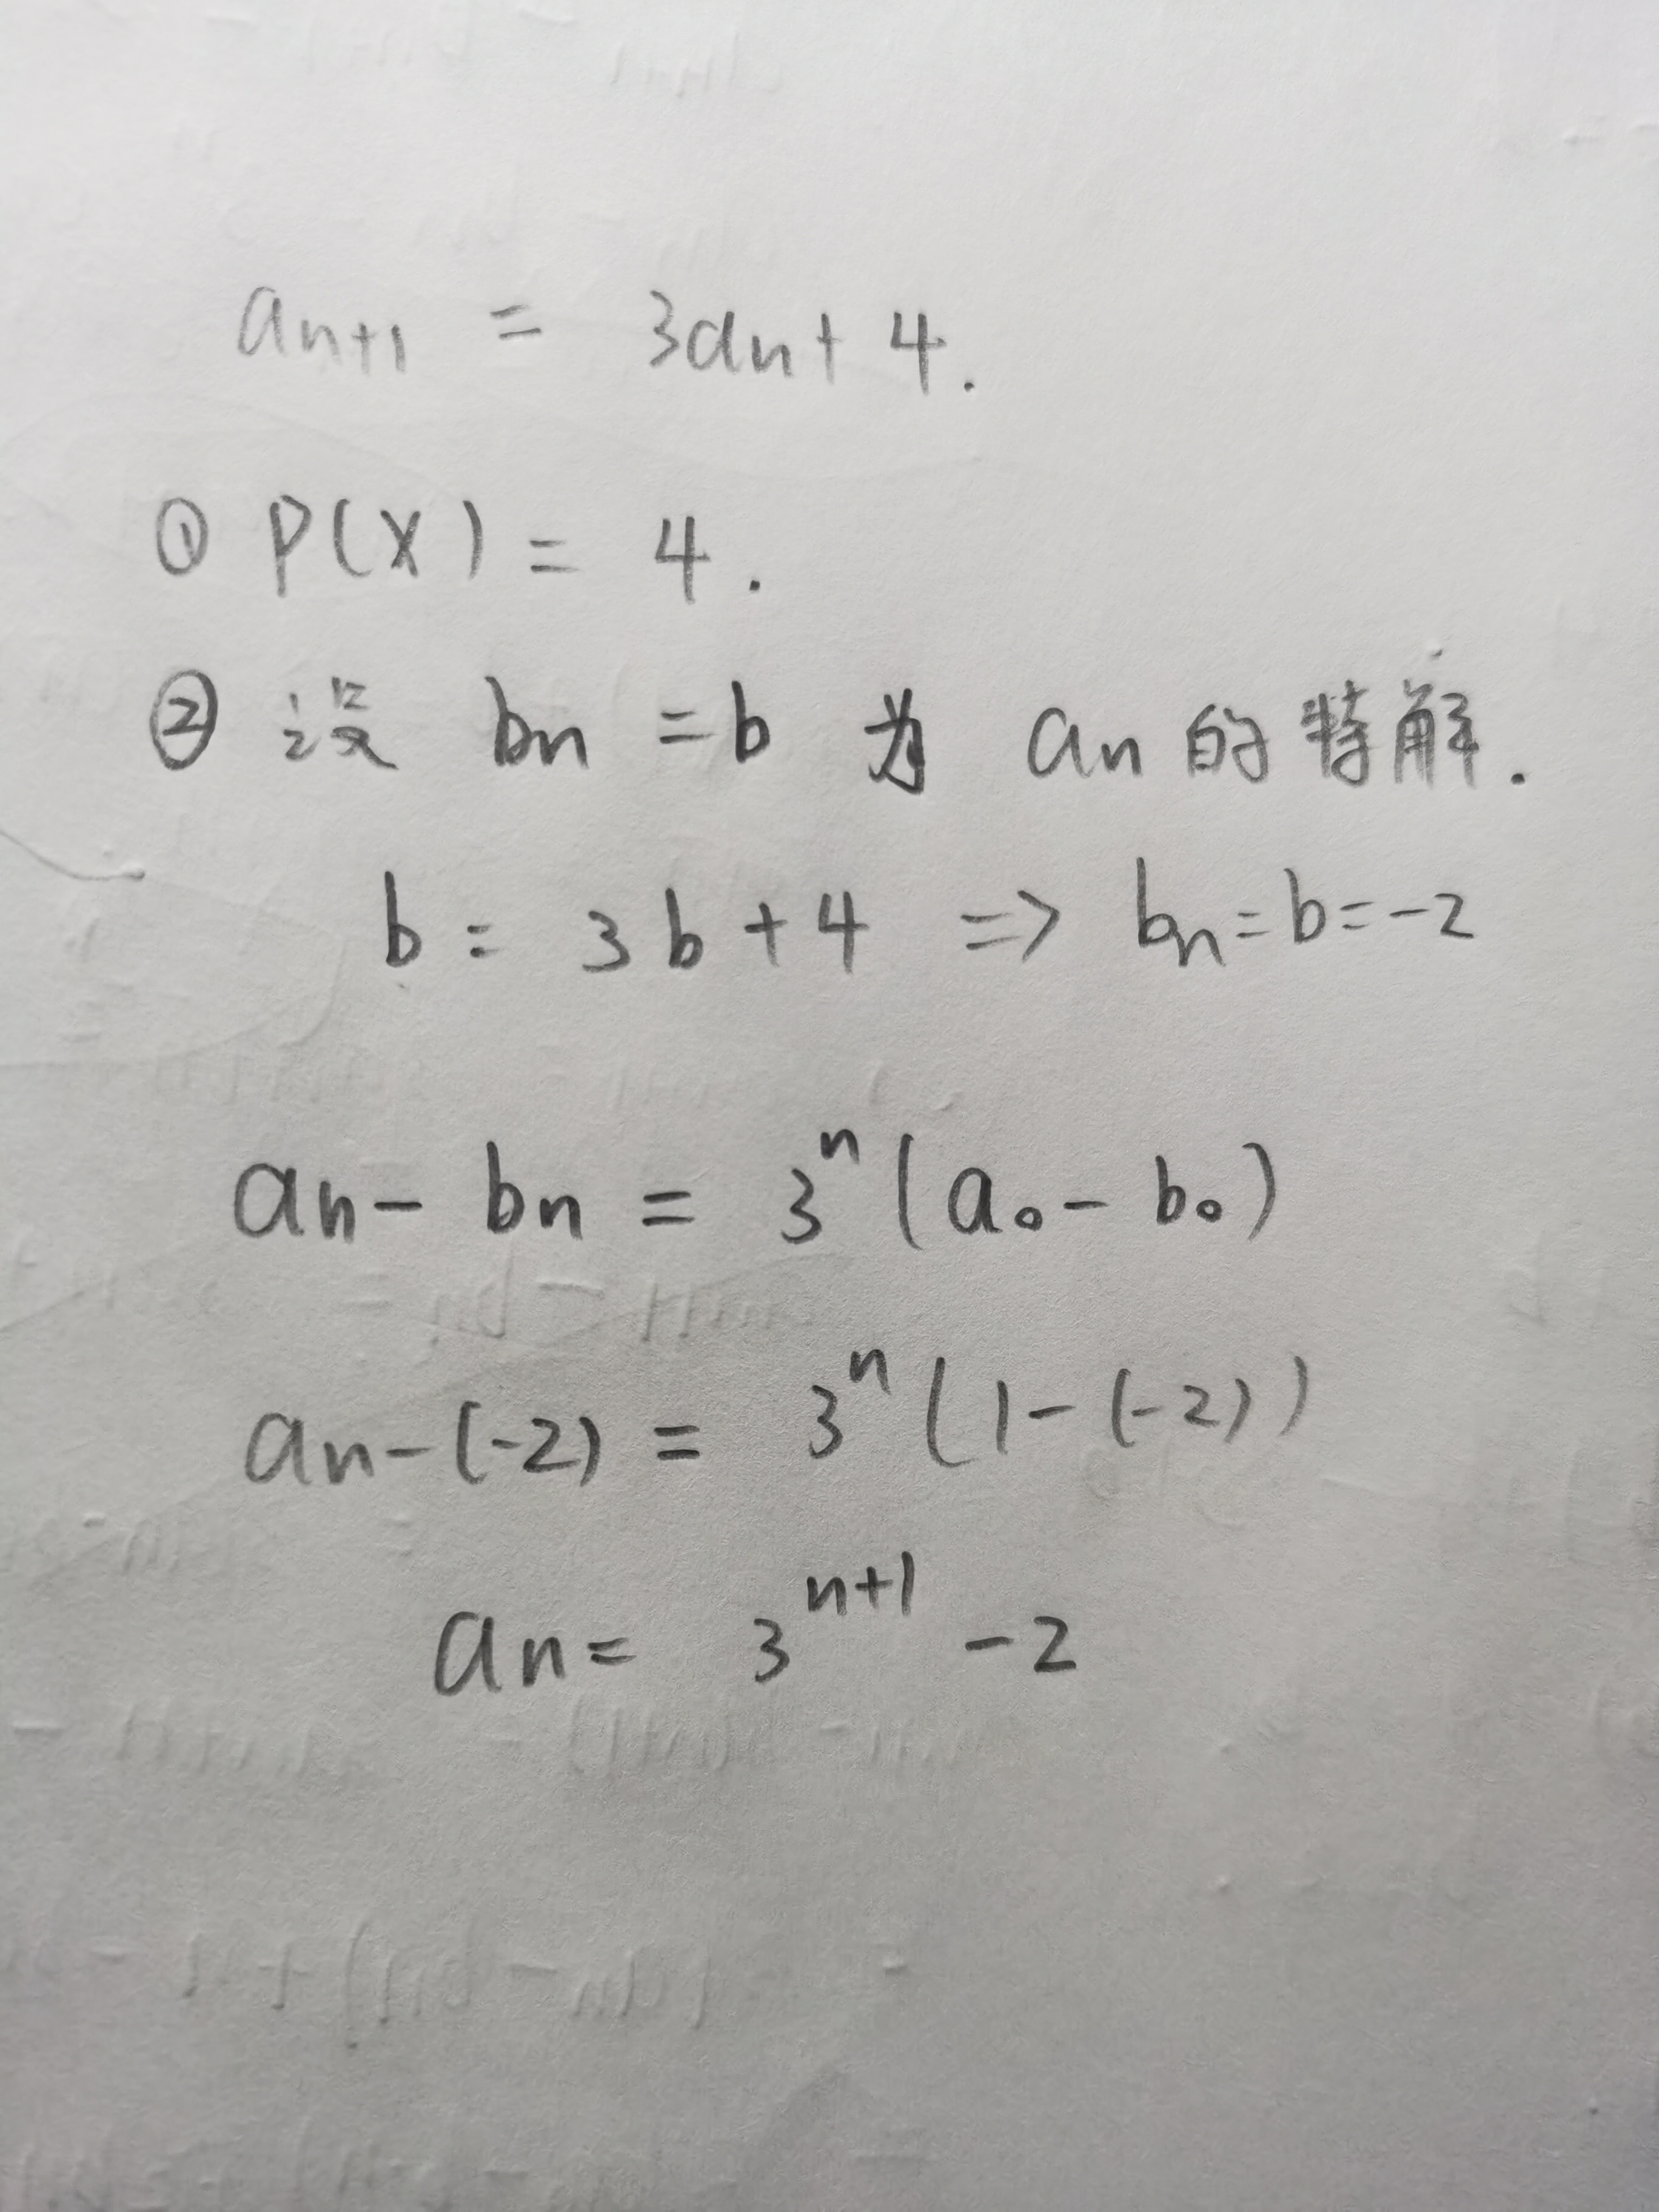 an+1 = 3an + 4.
① P(X) = 4.
② 设 bn = b 为 an 的特解.
b = 3b + 4 => bn = b = -2
an - bn = 3^n (a0 - b0)
an - (-2) = 3^n (1 - (-2))
an = 3^n+1 - 2